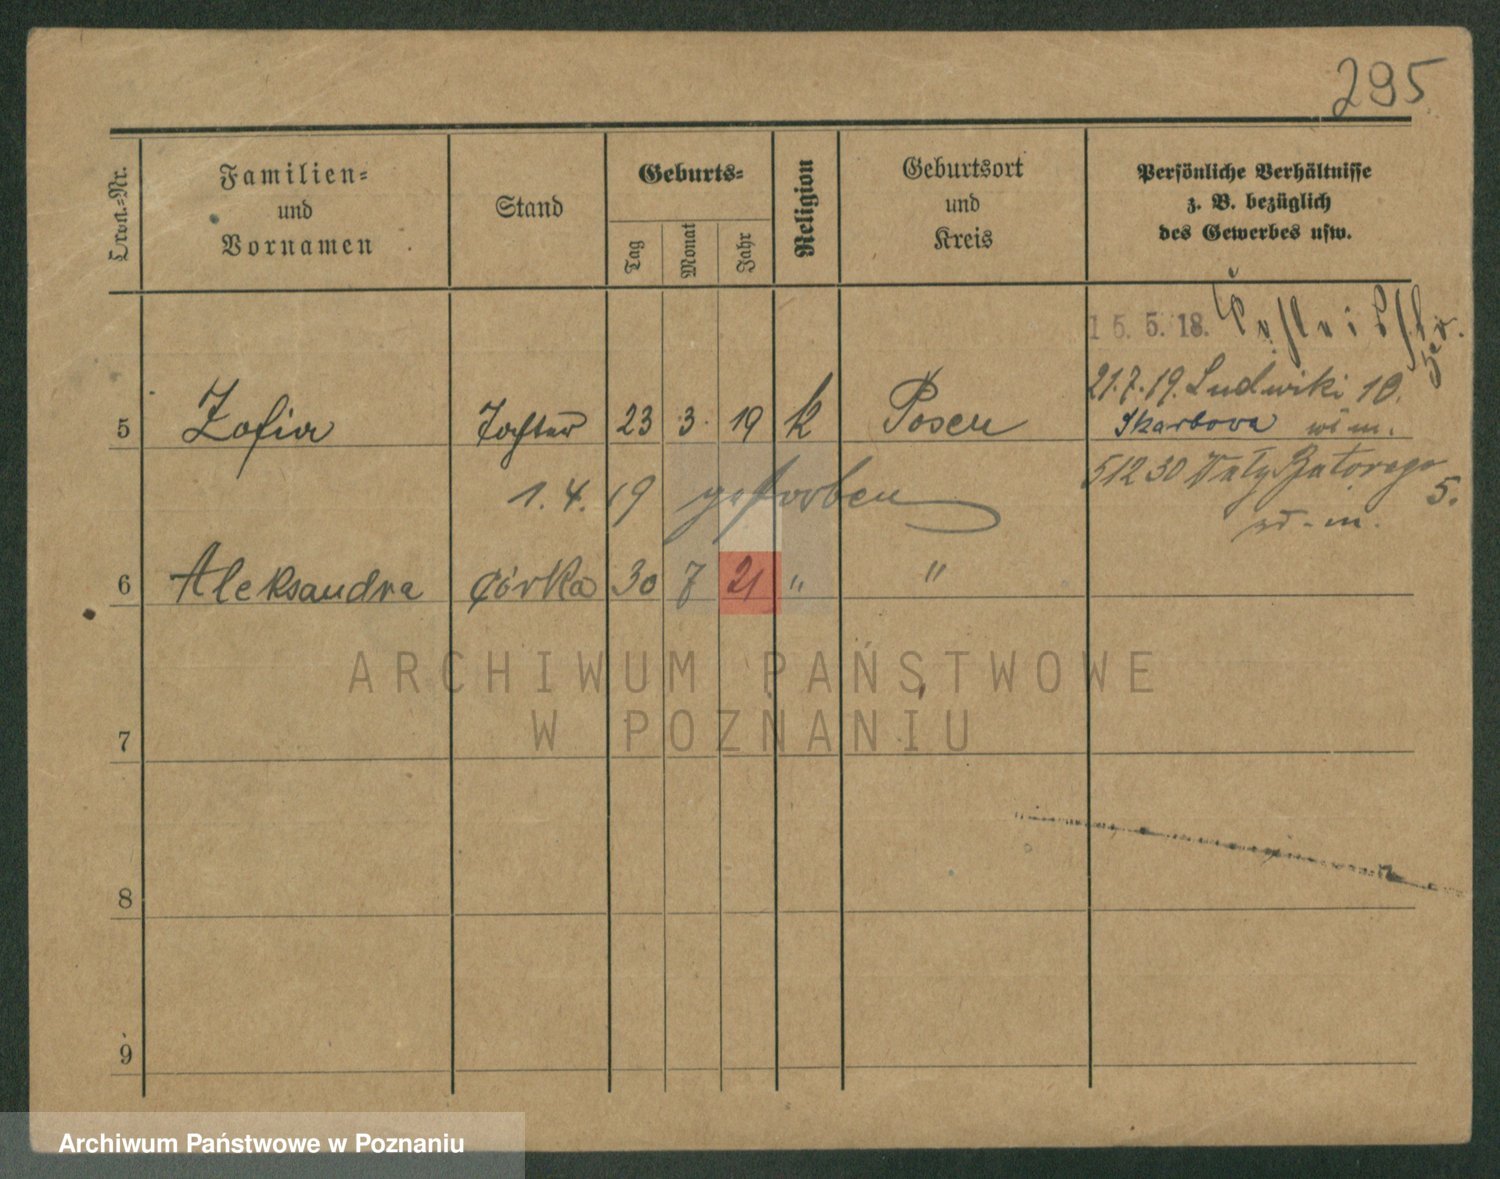 295
Familien-
und
Vornamen
Stand
Geburts-
Tag
Monat
Jahr
Religion
Geburtsort
und
Kreis
Persönliche Verhältnisse
z. B. bezüglich
des Gewerbes usw.
15. 5. 18.
21.7.19. Ludwiki 10.
5 Zofia Tochter 23 3. 19 k Posen Skarbowa
1. 4. 19 gestorben 5 12 30 Wały Batorego 5.
6 Aleksandra córka 30 7 21 " "
ARCHIWUM PAŃSTWOWE
W POZNANIU
7
8
9
Archiwum Państwowe w Poznaniu